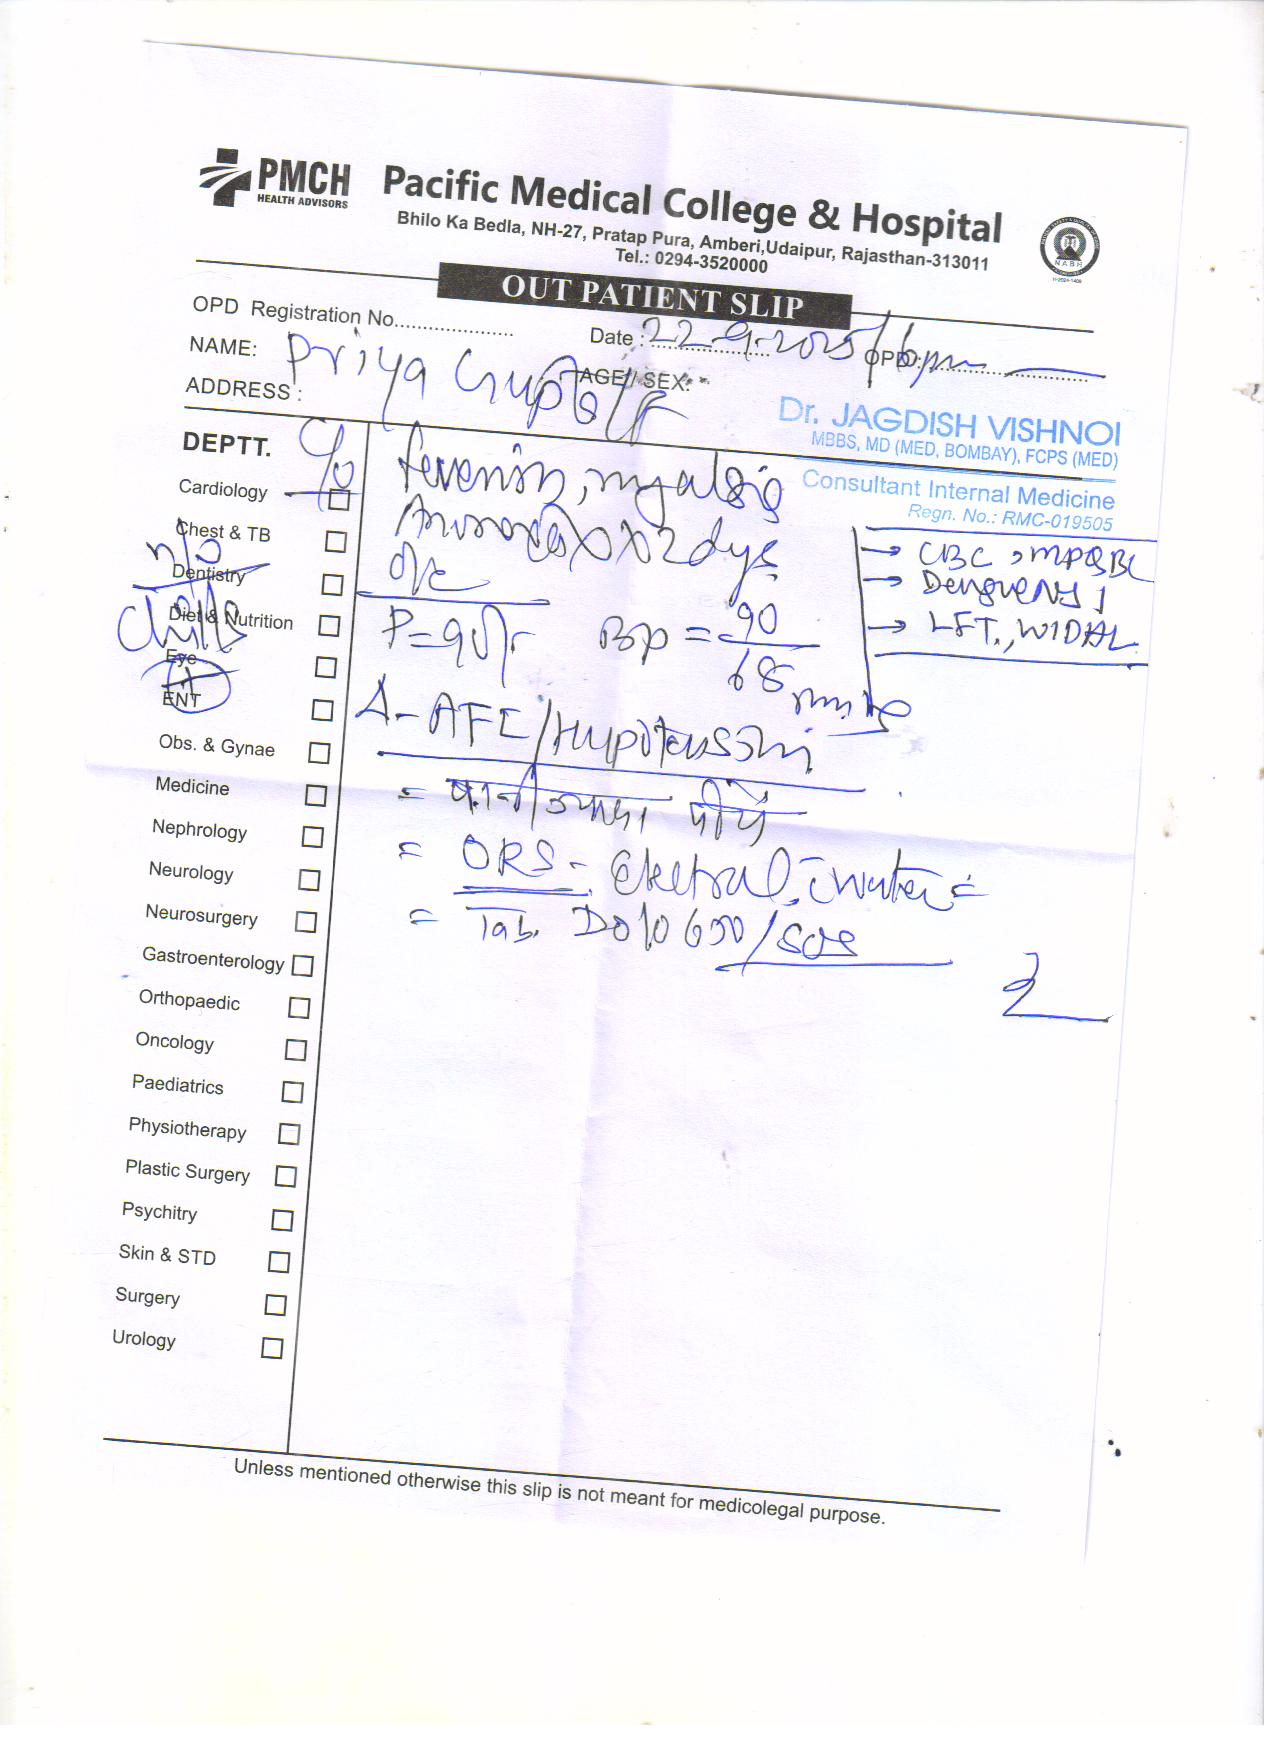 PMCH
HEALTH ADVISORS
Pacific Medical College & Hospital
Bhilo Ka Bedla, NH-27, Pratap Pura, Amberi,Udaipur, Rajasthan-313011
Tel.: 0294-3520000
NABH
H-2024-1409
OUT PATIENT SLIP
OPD Registration No.................... Date : 22-9-2025/6pm OPD :
NAME: Priya Gupta/F AGE / SEX:
ADDRESS :
Dr. JAGDISH VISHNOI
MBBS, MD (MED, BOMBAY), FCPS (MED)
Consultant Internal Medicine
Regn. No.: RMC-019505
DEPTT.
Cardiology
Chest & TB
Dentistry
Diet & Nutrition
Eye
ENT
Obs. & Gynae
Medicine
Nephrology
Neurology
Neurosurgery
Gastroenterology
Orthopaedic
Oncology
Paediatrics
Physiotherapy
Plastic Surgery
Psychitry
Skin & STD
Surgery
Urology
C/o
h/o
chills
+
myalgia
x 2 days
O/E
BP = 90/68 mmHg
→ CBC, MPQBC
→ Dengue NS1
→ LFT, WIDAL
Δ- AFI/Hypotension
= पानी ज्यादा पीयें
= ORS - Electral c water =
= Tab. Dolo 650/SOS
Unless mentioned otherwise this slip is not meant for medicolegal purpose.